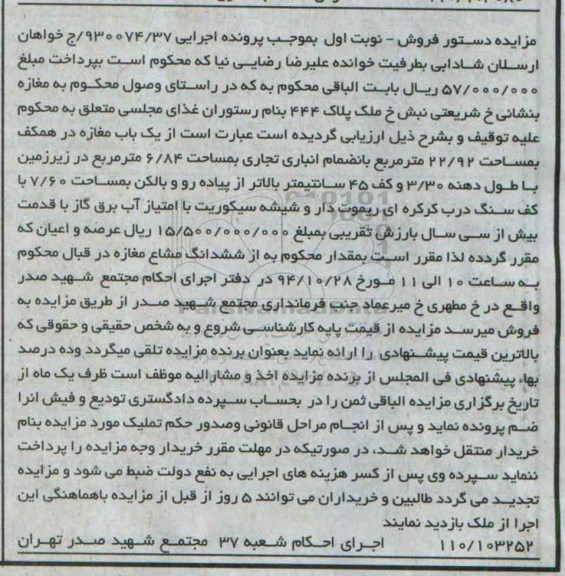 مزایده دستور فروش – نوبت اول بموجب پرونده اجرایی ۹۳۰۰۷۴/۳۷/ج خواهان
ارسلان شادابی بطرفیت خوانده علیرضا رضایی نیا که محکوم است بپرداخت مبلغ
۵۷/۰۰۰/۰۰۰ ریال بابت الباقی محکوم به که در راستای وصول محکوم به مغازه
بنشانی خ شریعتی نبش خ ملک پلاک ۴۴۴ بنام رستوران غذای مجلسی متعلق به محکوم
علیه توقیف و بشرح ذیل ارزیابی گردیده است عبارت است از یک باب مغازه در همکف
بمساحت ۲۲/۹۲ مترمربع بانضمام انباری تجاری بمساحت ۶/۸۴ مترمربع در زیرزمین
با طول دهنه ۳/۳۰ و کف ۴۵ سانتیمتر بالاتر از پیاده رو و بالکن بمساحت ۷/۶۰ با
کف سنگ درب کرکره ای ریموت دار و شیشه سیکوریت با امتیاز آب برق گاز با قدمت
بیش از سی سال بارزش تقریبی بمبلغ ۱۵/۵۰۰/۰۰۰/۰۰۰ ریال عرصه و اعیان که
مقرر گردده لذا مقرر است بمقدار محکوم به از ششدانگ مشاع مغازه در قبال محکوم
به ساعت ۱۰ الی ۱۱ مورخ ۹۴/۱۰/۲۸ در دفتر اجرای احکام مجتمع شهید صدر
واقع در خ مطهری خ میرعماد جنب فرمانداری مجتمع شهید صدر از طریق مزایده به
فروش میرسد مزایده از قیمت پایه کارشناسی شروع و به شخص حقیقی و حقوقی که
بالاترین قیمت پیشنهادی را ارائه نماید بعنوان برنده مزایده تلقی میگردد وده درصد
بهاء پیشنهادی فی المجلس از برنده مزایده اخذ و مشارالیه موظف است ظرف یک ماه از
تاریخ برگزاری مزایده الباقی ثمن را در بحساب سپرده دادگستری تودیع و فیش انرا
ضم پرونده نماید و پس از انجام مراحل قانونی وصدور حکم تملیک مورد مزایده بنام
خریدار منتقل خواهد شد، در صورتیکه در مهلت مقرر خریدار وجه مزایده را پرداخت
ننماید سپرده وی پس از کسر هزینه های اجرایی به نفع دولت ضبط می شود و مزایده
تجدید می گردد طالبین و خریداران می توانند ۵ روز از قبل از مزایده باهماهنگی این
اجرا از ملک بازدید نمایند
۱۱۰/۱۰۳۲۵۲ اجرای احکام شعبه ۳۷ مجتمع شهید صدر تهران